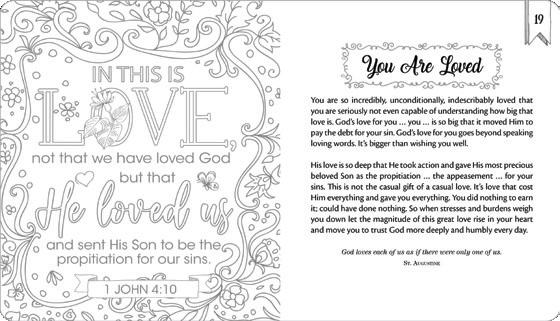 IN THIS IS
LOVE,
not that we have loved God
but that
He loved us
and sent His Son to be the
propitiation for our sins.
1 JOHN 4:10
19
You Are Loved
You are so incredibly, unconditionally, indescribably loved that
you are seriously not even capable of understanding how big that
love is. God's love for you ... you ... is so big that it moved Him to
pay the debt for your sin. God's love for you goes beyond speaking
loving words. It's bigger than wishing you well.
His love is so deep that He took action and gave His most precious
beloved Son as the propitiation ... the appeasement ... for your
sins. This is not the casual gift of a casual love. It's love that cost
Him everything and gave you everything. You did nothing to earn
it; could have done nothing. So when stresses and burdens weigh
you down let the magnitude of this great love rise in your heart
and move you to trust God more deeply and humbly every day.
God loves each of us as if there were only one of us.
St. Augustine